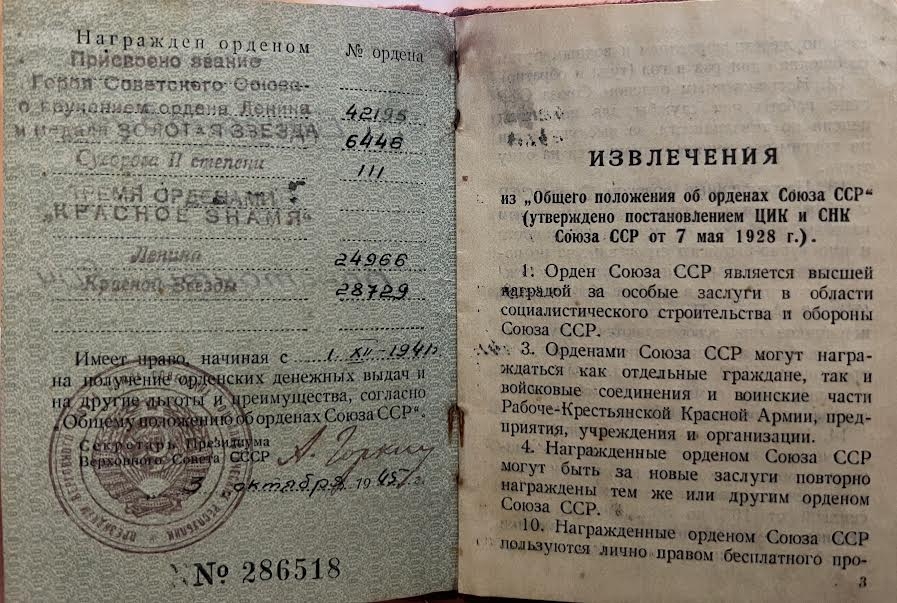 Награжден орденом
№ ордена
Присвоено звание
Героя Советского Союза
с вручением ордена Ленина
42195
и медали ЗОЛОТАЯ ЗВЕЗДА
6446
Суворова II степени
111
ТРЕМЯ ОРДЕНАМИ
„КРАСНОЕ ЗНАМЯ“
Ленина
24966
Красной Звезды
28729
Имеет право, начиная с 1 XII-1941
на получение орденских денежных выдач и
на другие льготы и преимущества, согласно
„Общему положению об орденах Союза ССР“.
Секретарь Президиума
Верховного Совета СССР А. Горкин
3 октября 1945 г.
№ 286518
ИЗВЛЕЧЕНИЯ
из „Общего положения об орденах Союза ССР“
(утверждено постановлением ЦИК и СНК
Союза ССР от 7 мая 1928 г.).
1. Орден Союза ССР является высшей
наградой за особые заслуги в области
социалистического строительства и обороны
Союза ССР.
3. Орденами Союза ССР могут награ-
ждаться как отдельные граждане, так и
войсковые соединения и воинские части
Рабоче-Крестьянской Красной Армии, пред-
приятия, учреждения и организации.
4. Награжденные орденом Союза ССР
могут быть за новые заслуги повторно
награждены тем же или другим орденом
Союза ССР.
10. Награжденные орденом Союза ССР
пользуются лично правом бесплатного про-
3